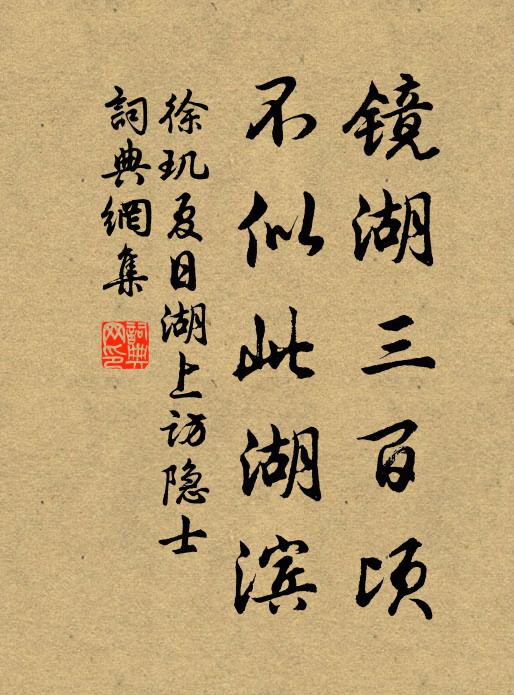 镜湖三百顷
不似此湖滨
徐玑夏日湖上访隐士
詞典網集
詞典网印